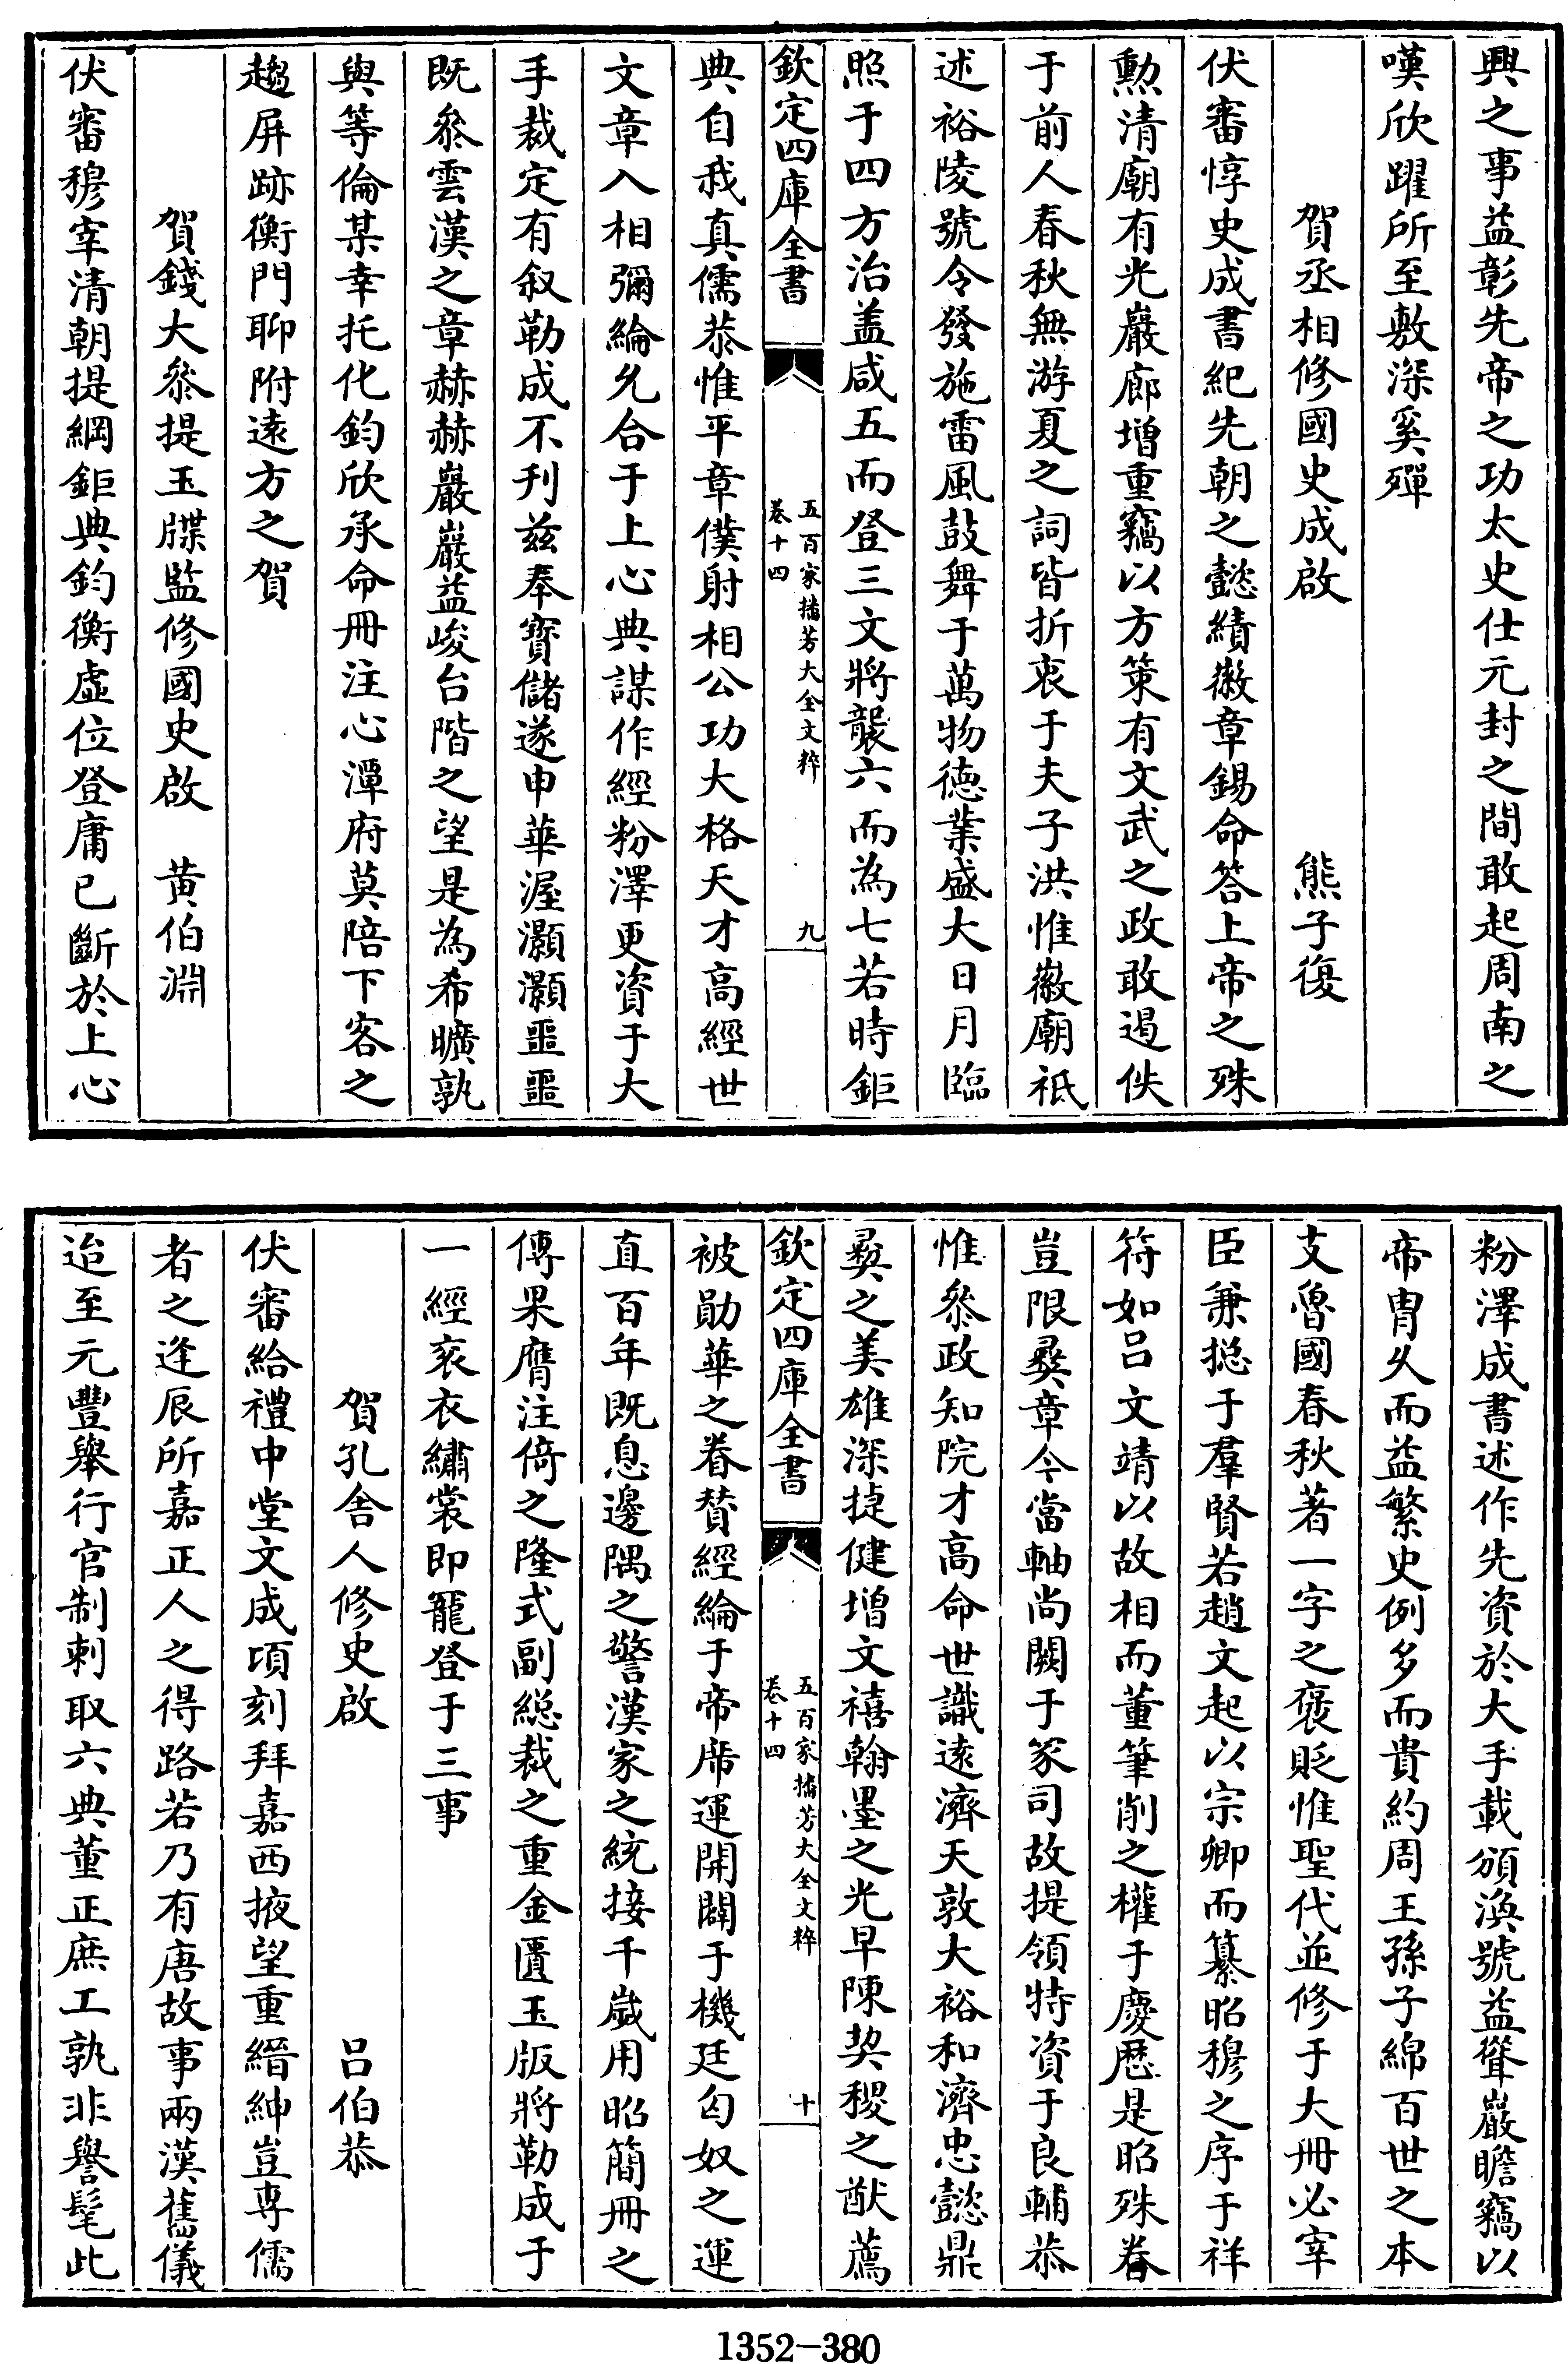 興之事益彰先帝之功太史仕元封之間敢起周南之
嘆欣躍所至敷深奚殫
賀丞相修國史成啟　熊子復
伏審惇史成書紀先朝之懿績徽章錫命答上帝之殊
勲清廟有光巖廊增重竊以方策有文武之政敢遏佚
于前人春秋無游夏之詞皆折衷于夫子洪惟徽廟祗
述裕陵號令發施雷風鼓舞于萬物德業盛大日月臨
照于四方治盖咸五而登三文將襲六而為七若時鉅
欽定四庫全書　五百家播芳大全文粹　卷十四　九
典自我真儒恭惟平章僕射相公功大格天才高經世
文章入相彌綸允合于上心典謀作經粉澤更資于大
手裁定有叙勒成不刋兹奉寳儲遂申華渥灝灝噩噩
既叅雲漢之章赫赫巖巖益峻台階之望是為希曠孰
與等倫某幸托化鈞欣承命冊注心潭府莫陪下客之
趨屏跡衡門聊附逺方之賀
賀錢大叅提玉牒監修國史啟　黄伯淵
伏審穆宰清朝提綱鉅典鈞衡虚位登庸已斷於上心
粉澤成書述作先資於大手載頒渙號益聳巖瞻竊以
帝胄乆而益繁史例多而貴約周王孫子綿百世之本
支魯國春秋著一字之褒貶惟聖代並修于大冊必宰
臣兼揔于羣賢若趙文起以宗卿而纂昭穆之序于祥
符如吕文靖以故相而董筆削之權于慶厯是昭殊眷
豈限彛章今當軸尚闕于冢司故提領特資于良輔恭
惟叅政知院才高命世識逺濟天敦大裕和濟忠懿鼎
彛之美雄深㨗健增文禧翰墨之光早陳契稷之猷薦
欽定四庫全書　五百家播芳大全文粹　卷十四　十
被勛華之眷賛經綸于帝席運開闢于機廷匈奴之運
直百年既息邊隅之警漢家之統接千歲用昭簡冊之
傳果膺注倚之隆式副總裁之重金匱玉版將勒成于
一經衮衣繡裳即寵登于三事
賀孔舍人修史啟　吕伯恭
伏審給禮中堂文成頃刻拜嘉西掖望重縉紳豈専儒
者之逢辰所嘉正人之得路若乃有唐故事兩漢舊儀
迨至元豐舉行官制刺取六典董正庶工孰非譽髦此
1352-380